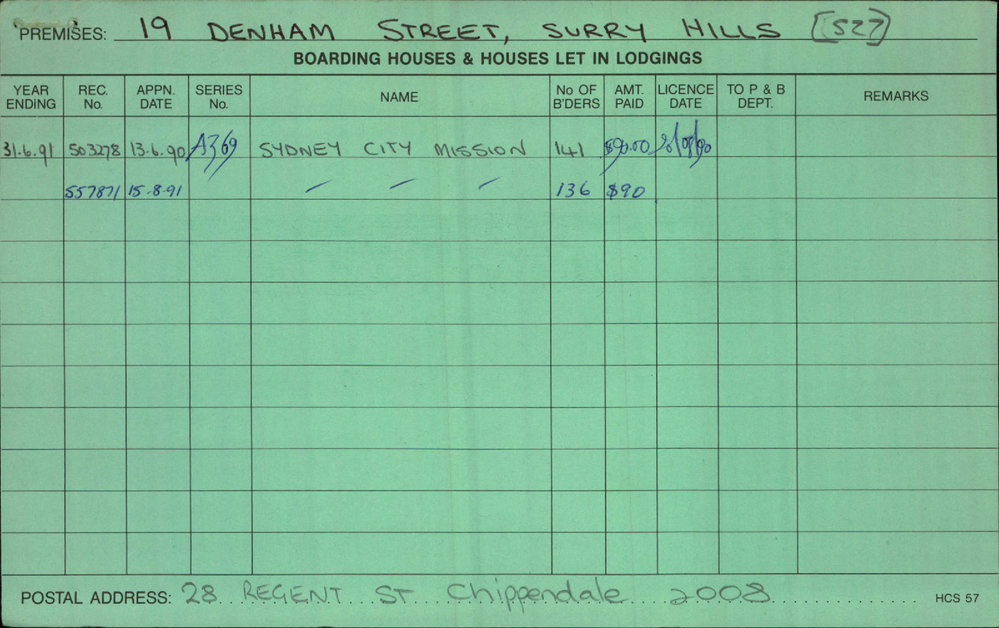 PREMISES: 19 DENHAM STREET, SURRY HILLS [527]
BOARDING HOUSES & HOUSES LET IN LODGINGS
YEAR ENDING REC. No. APPN. DATE SERIES No. NAME No OF B'DERS AMT. PAID LICENCE DATE TO P & B DEPT. REMARKS
31.6.91 503278 13.6.90 A369 SYDNEY CITY MISSION 141 $90.00
557871 15.8.91 136 $90
POSTAL ADDRESS: 28 REGENT ST Chippendale 2008 HCS 57